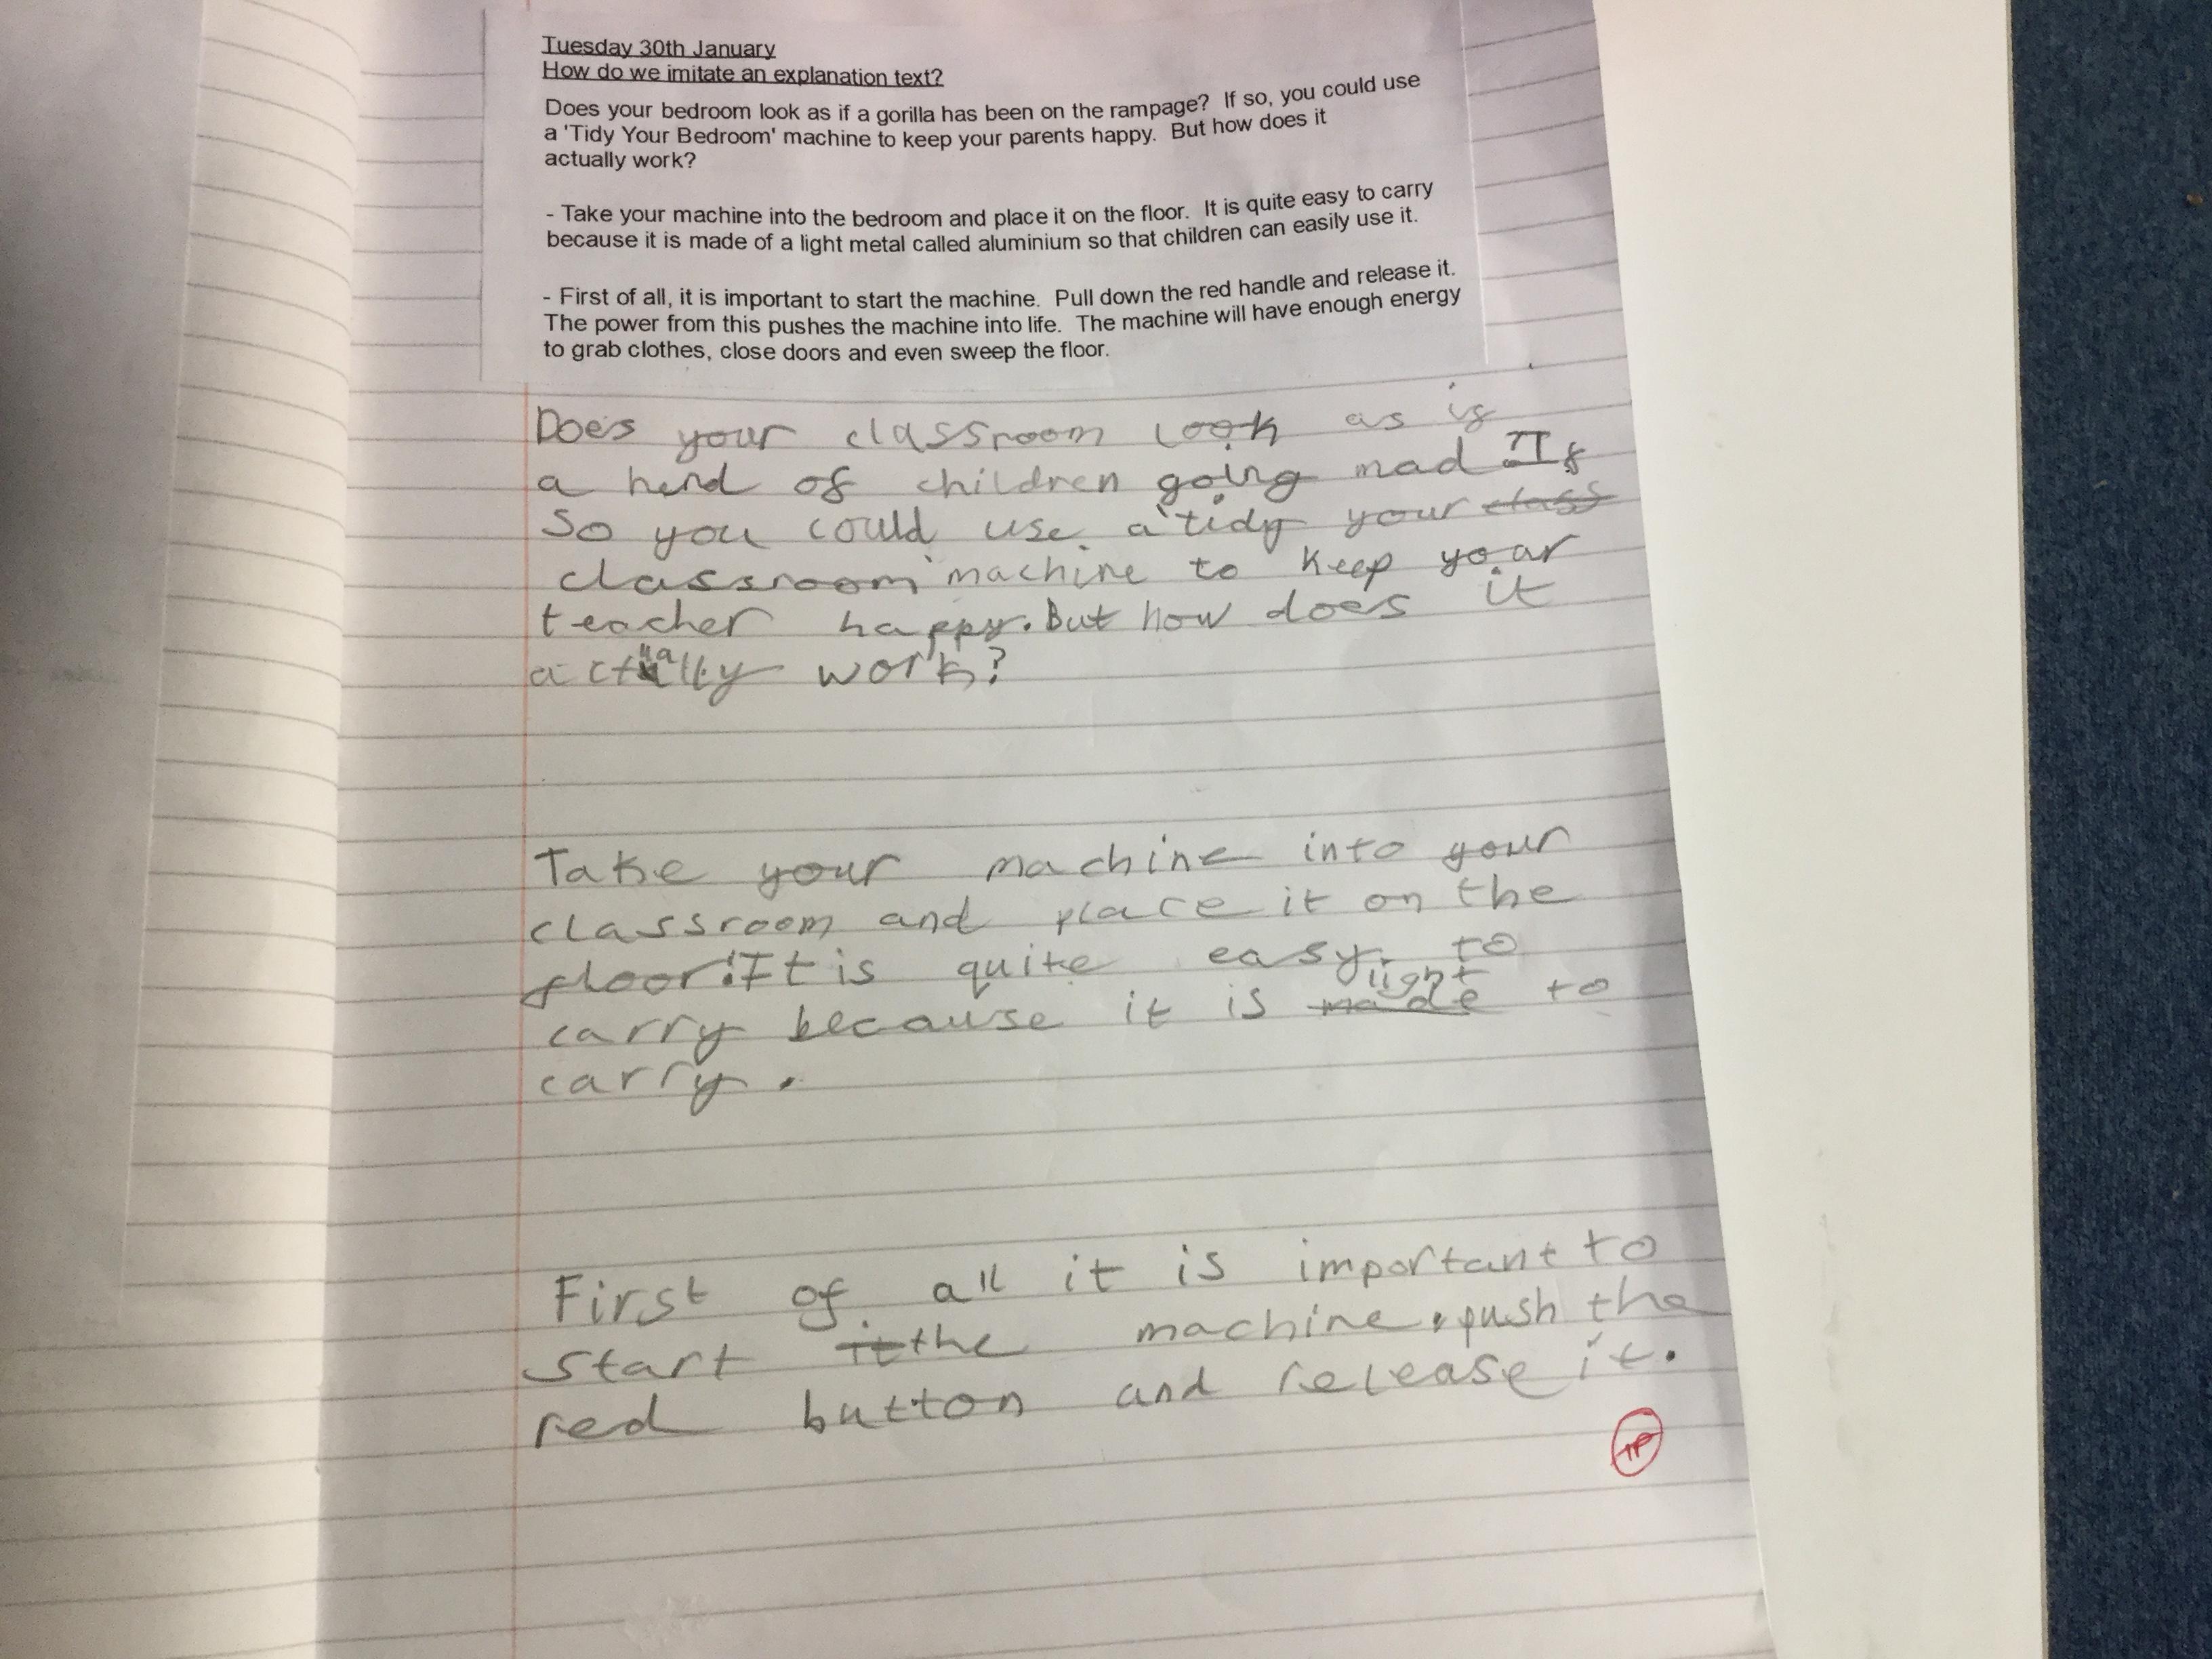 Tuesday 30th January
How do we imitate an explanation text?
Does your bedroom look as if a gorilla has been on the rampage? If so, you could use
a 'Tidy Your Bedroom' machine to keep your parents happy. But how does it
actually work?
- Take your machine into the bedroom and place it on the floor. It is quite easy to carry
because it is made of a light metal called aluminium so that children can easily use it.
- First of all, it is important to start the machine. Pull down the red handle and release it.
The power from this pushes the machine into life. The machine will have enough energy
to grab clothes, close doors and even sweep the floor.
Does your classroom look as if
a herd of children going mad ?If
so you could use a 'tidy your class
classroom' machine to keep your
teacher happy. But how does it
actually work?
Take your machine into your
classroom and place it on the
floor. It is quite easy to
light
carry because it is made to
carry.
First of all it is important to
start it the machine. push the
red button and release it.